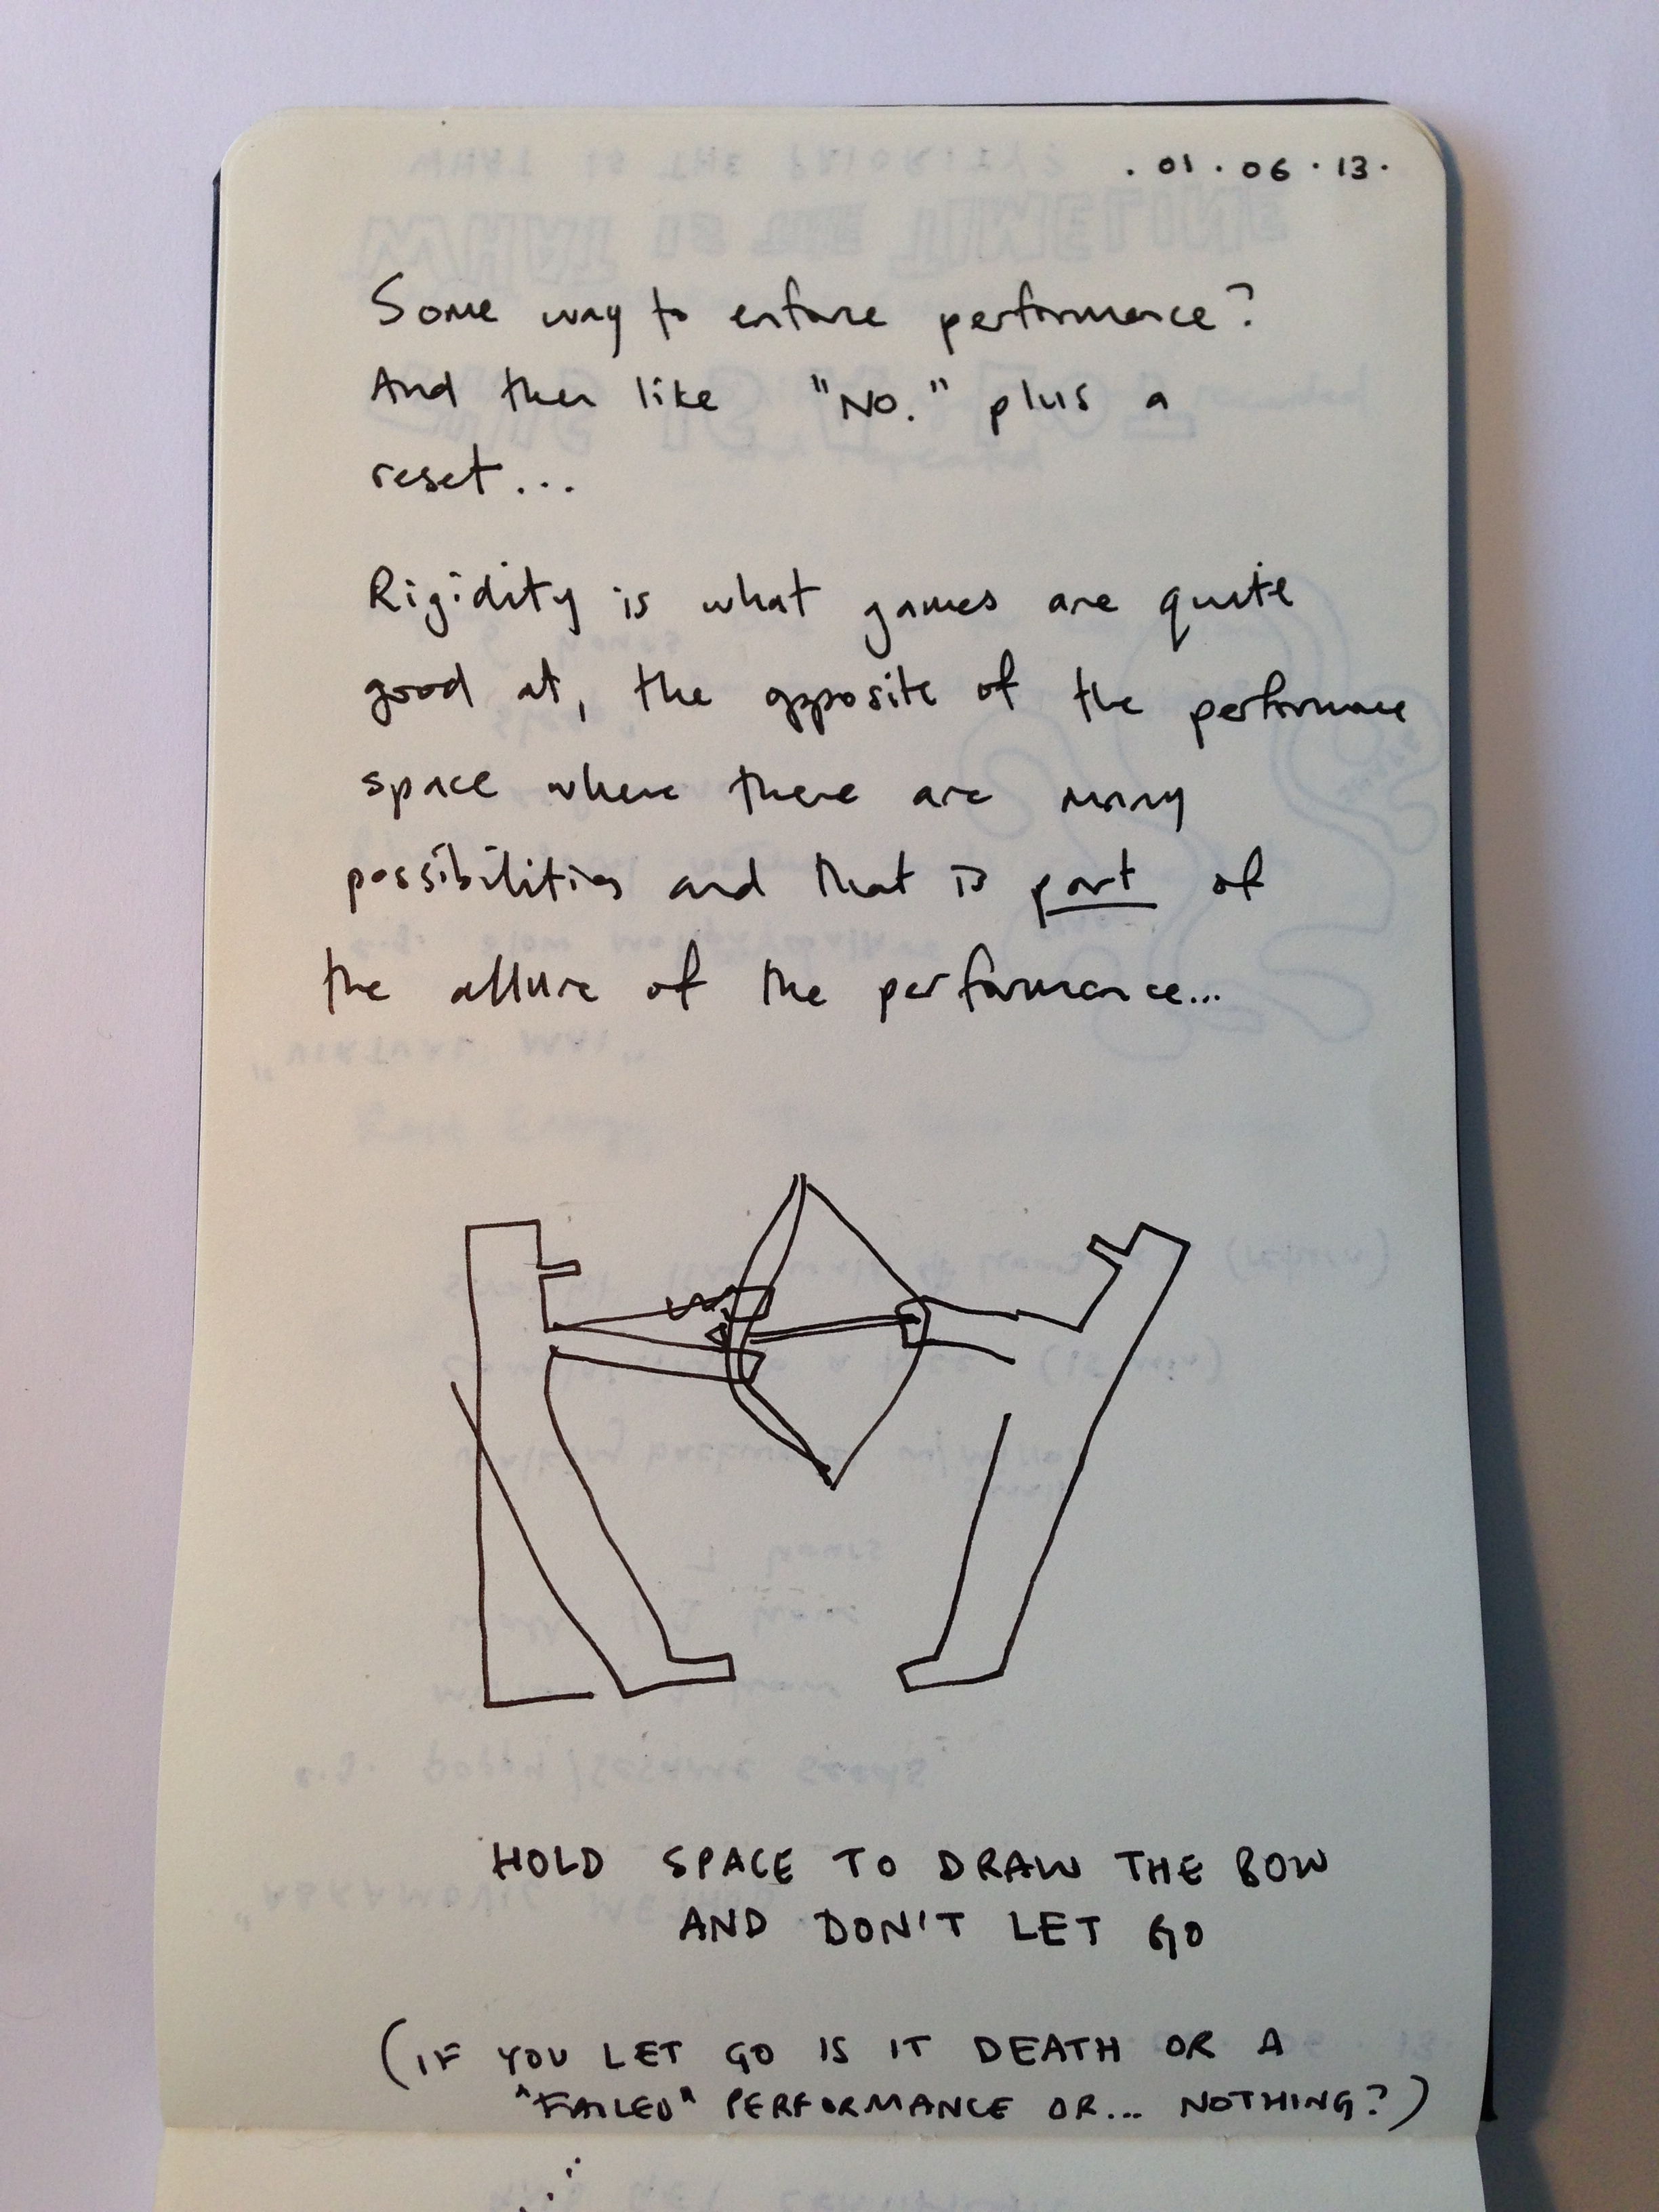 . 01 . 06 . 13 .
Some way to enforce performance?
And then like "NO." plus a
reset...
Rigidity is what games are quite
good at, the opposite of the performance
space where there are many
possibilities and that is part of
the allure of the performance...
HOLD SPACE TO DRAW THE BOW
AND DON'T LET GO
(IF YOU LET GO IS IT DEATH OR A
"FAILED" PERFORMANCE OR... NOTHING?)